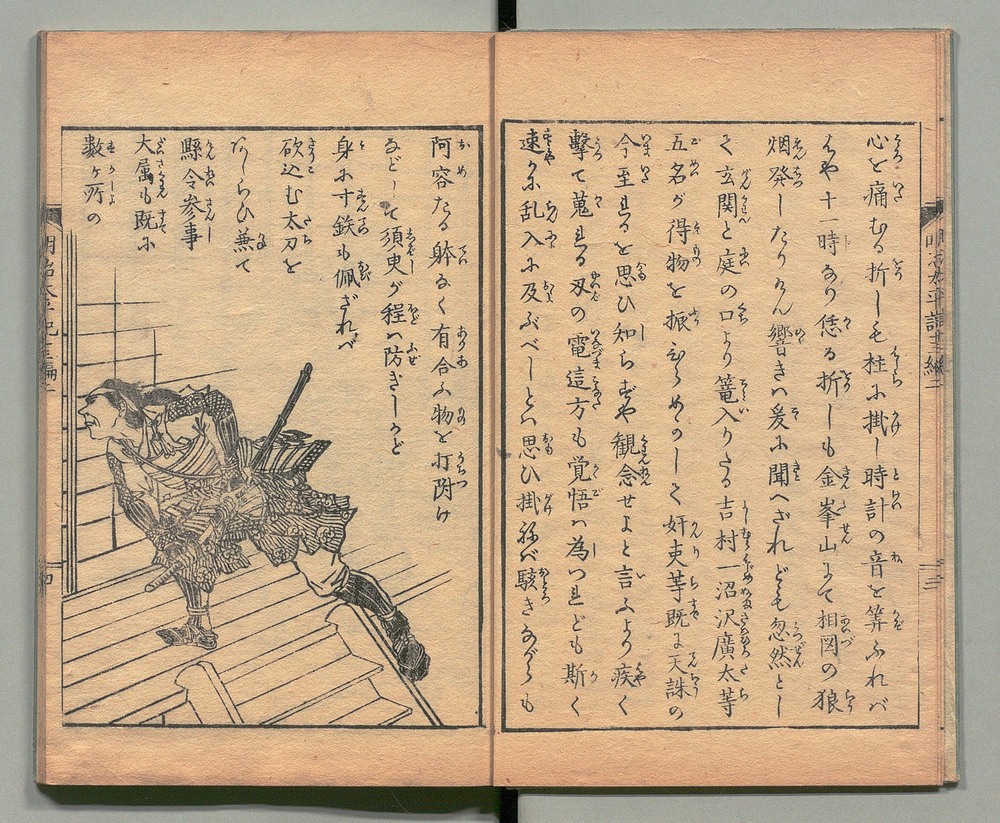 心を痛むる折しも柱に掛し時計の音を算ふれバ
はや十一時なり恁る折しも金峯山にて相図の狼
烟発したりけん響きハ爰に聞へざれども忽然とし
て玄関と庭の口より籠入りたる吉村一沼沢廣太等
五名が得物を振ひらめかして奸吏等既に天誅の
今至るを思ひ知らずや観念せよと言ふより疾く
撃て蒐る刃の電這方も覚悟ハ為つれども斯く
速に乱入に及ぶべしとハ思ひ掛ねバ駭きながらも
阿容たる躰なく有合ふ物を打附け
などして須臾が程ハ防ぎしかど
身に寸鉄も佩ざれバ
砍込む太刀を
あしらひ兼て
縣令参事
大属も既に
數ヶ所の
明治太平記十三編二
三
明治太平記十三編二
四